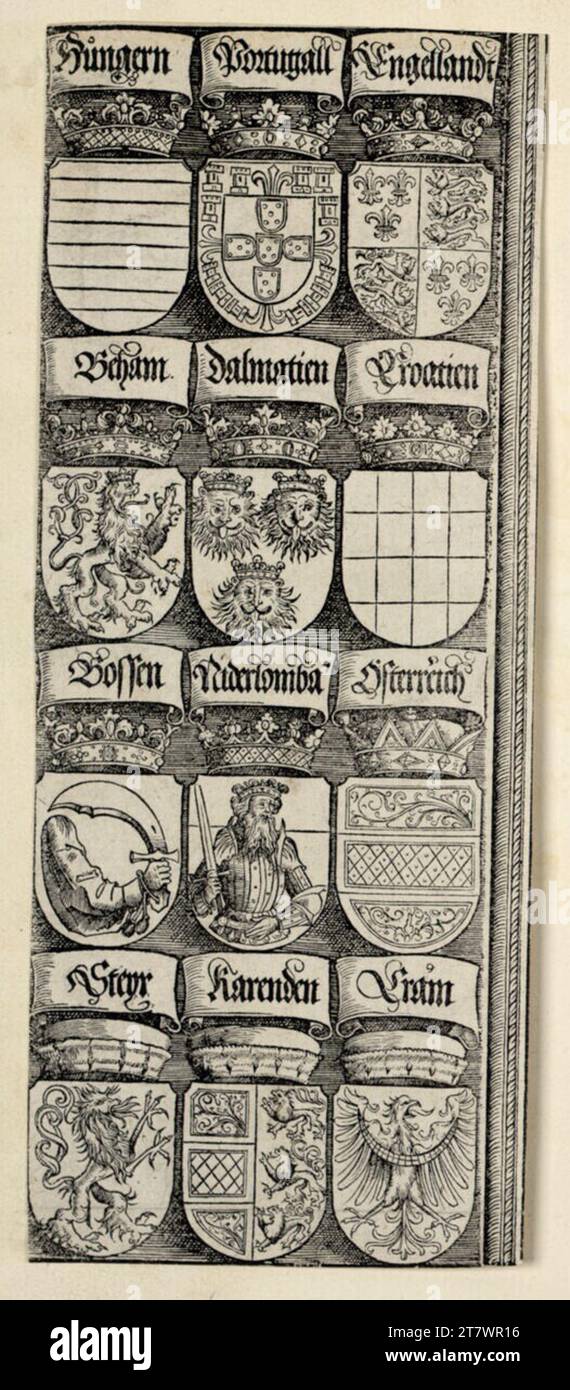 Hungern Portugall Engellandt
Beham Dalmatien Croatien
Bossen Niderlomba Osterreich
Steyr Karenden Crain
alamy
Image ID: 2T7WR16
www.alamy.com